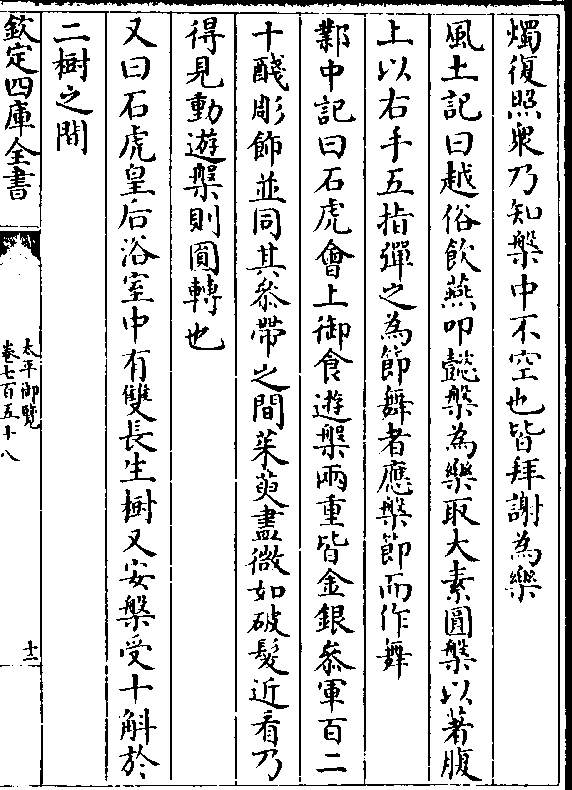 燭復照衆乃知槃中不空也皆拜謝為樂
風土記曰越俗飲燕叩懿槃為樂取大素圓槃以著腹
上以右手五指彈之為節舞者應槃節而作舞
鄴中記曰石虎會上御食遊槃兩重皆金銀叅軍百二
十醆彫飾並同其叅帶之間茱萸盡微如破髮近看乃
得見動遊槃則圓轉也
又曰石虎皇后浴室中有雙長生樹又安槃受十斛於
二樹之間
欽定四庫全書
太平御覽
卷七百五十八
十二